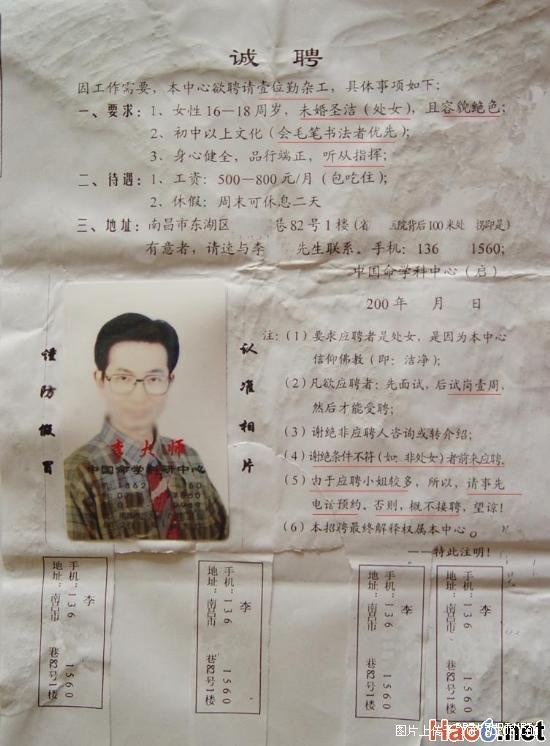 诚 聘
因工作需要，本中心欲聘请壹位勤杂工，具体事项如下：
一、要求：1、女性16—18周岁，未婚圣洁（处女），且容貌绝色；
2、初中以上文化（会毛笔书法者优先）；
3、身心健全，品行端正，听从指挥；
二、待遇：1、工资：500—800元/月（包吃住）；
2、休假：周末可休息二天
三、地址：南昌市东湖区 巷82号1楼（省 医院背后100米处 拐即是）
有意者，请速与李 先生联系。手机：136 1560；
中国命学科中心（启）
200 年 月 日
谨防假冒
李大师
中国命学科研中心
认准相片
注：（1）要求应聘者是处女，是因为本中心
信仰佛教（即：洁净）；
（2）凡欲应聘者：先面试，后试岗壹周，
然后才能受聘；
（3）谢绝非应聘人咨询或转介绍；
（4）谢绝条件不符（如：非处女）者前来应聘。
（5）由于应聘小姐较多，所以，请事先
电话预约。否则，概不接聘，望谅！
（6）本招聘最终解释权属本中心。
——特此注明！
李
手机：136 1560
地址：南昌市 巷82号1楼
李
手机：136 1560
地址：南昌市 巷82号1楼
李
手机：136 1560
地址：南昌市 巷82号1楼
李
手机：136 1560
地址：南昌市 巷82号1楼
Hao6.net